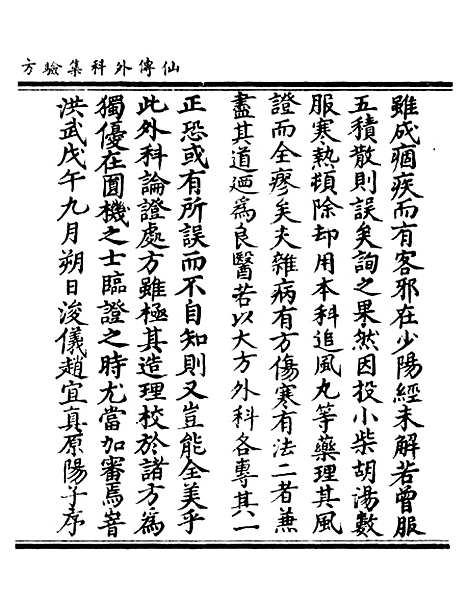 仙傳外科集驗方
雖成痼疾而有客邪在少陽經未解若曾服
五積散則誤矣詢之果然因投小柴胡湯數
服寒熱頓除却用本科追風丸等藥理其風
證而全瘳矣夫雜病有方傷寒有法二者兼
盡其道迺爲良醫若以大方外科各專其一
正恐或有所誤而不自知則又豈能全美乎
此外科論證處方雖極其造理校於諸方爲
獨優在圓機之士臨證之時尤當加審焉旹
洪武戊午九月朔日浚儀趙宜真原陽子序